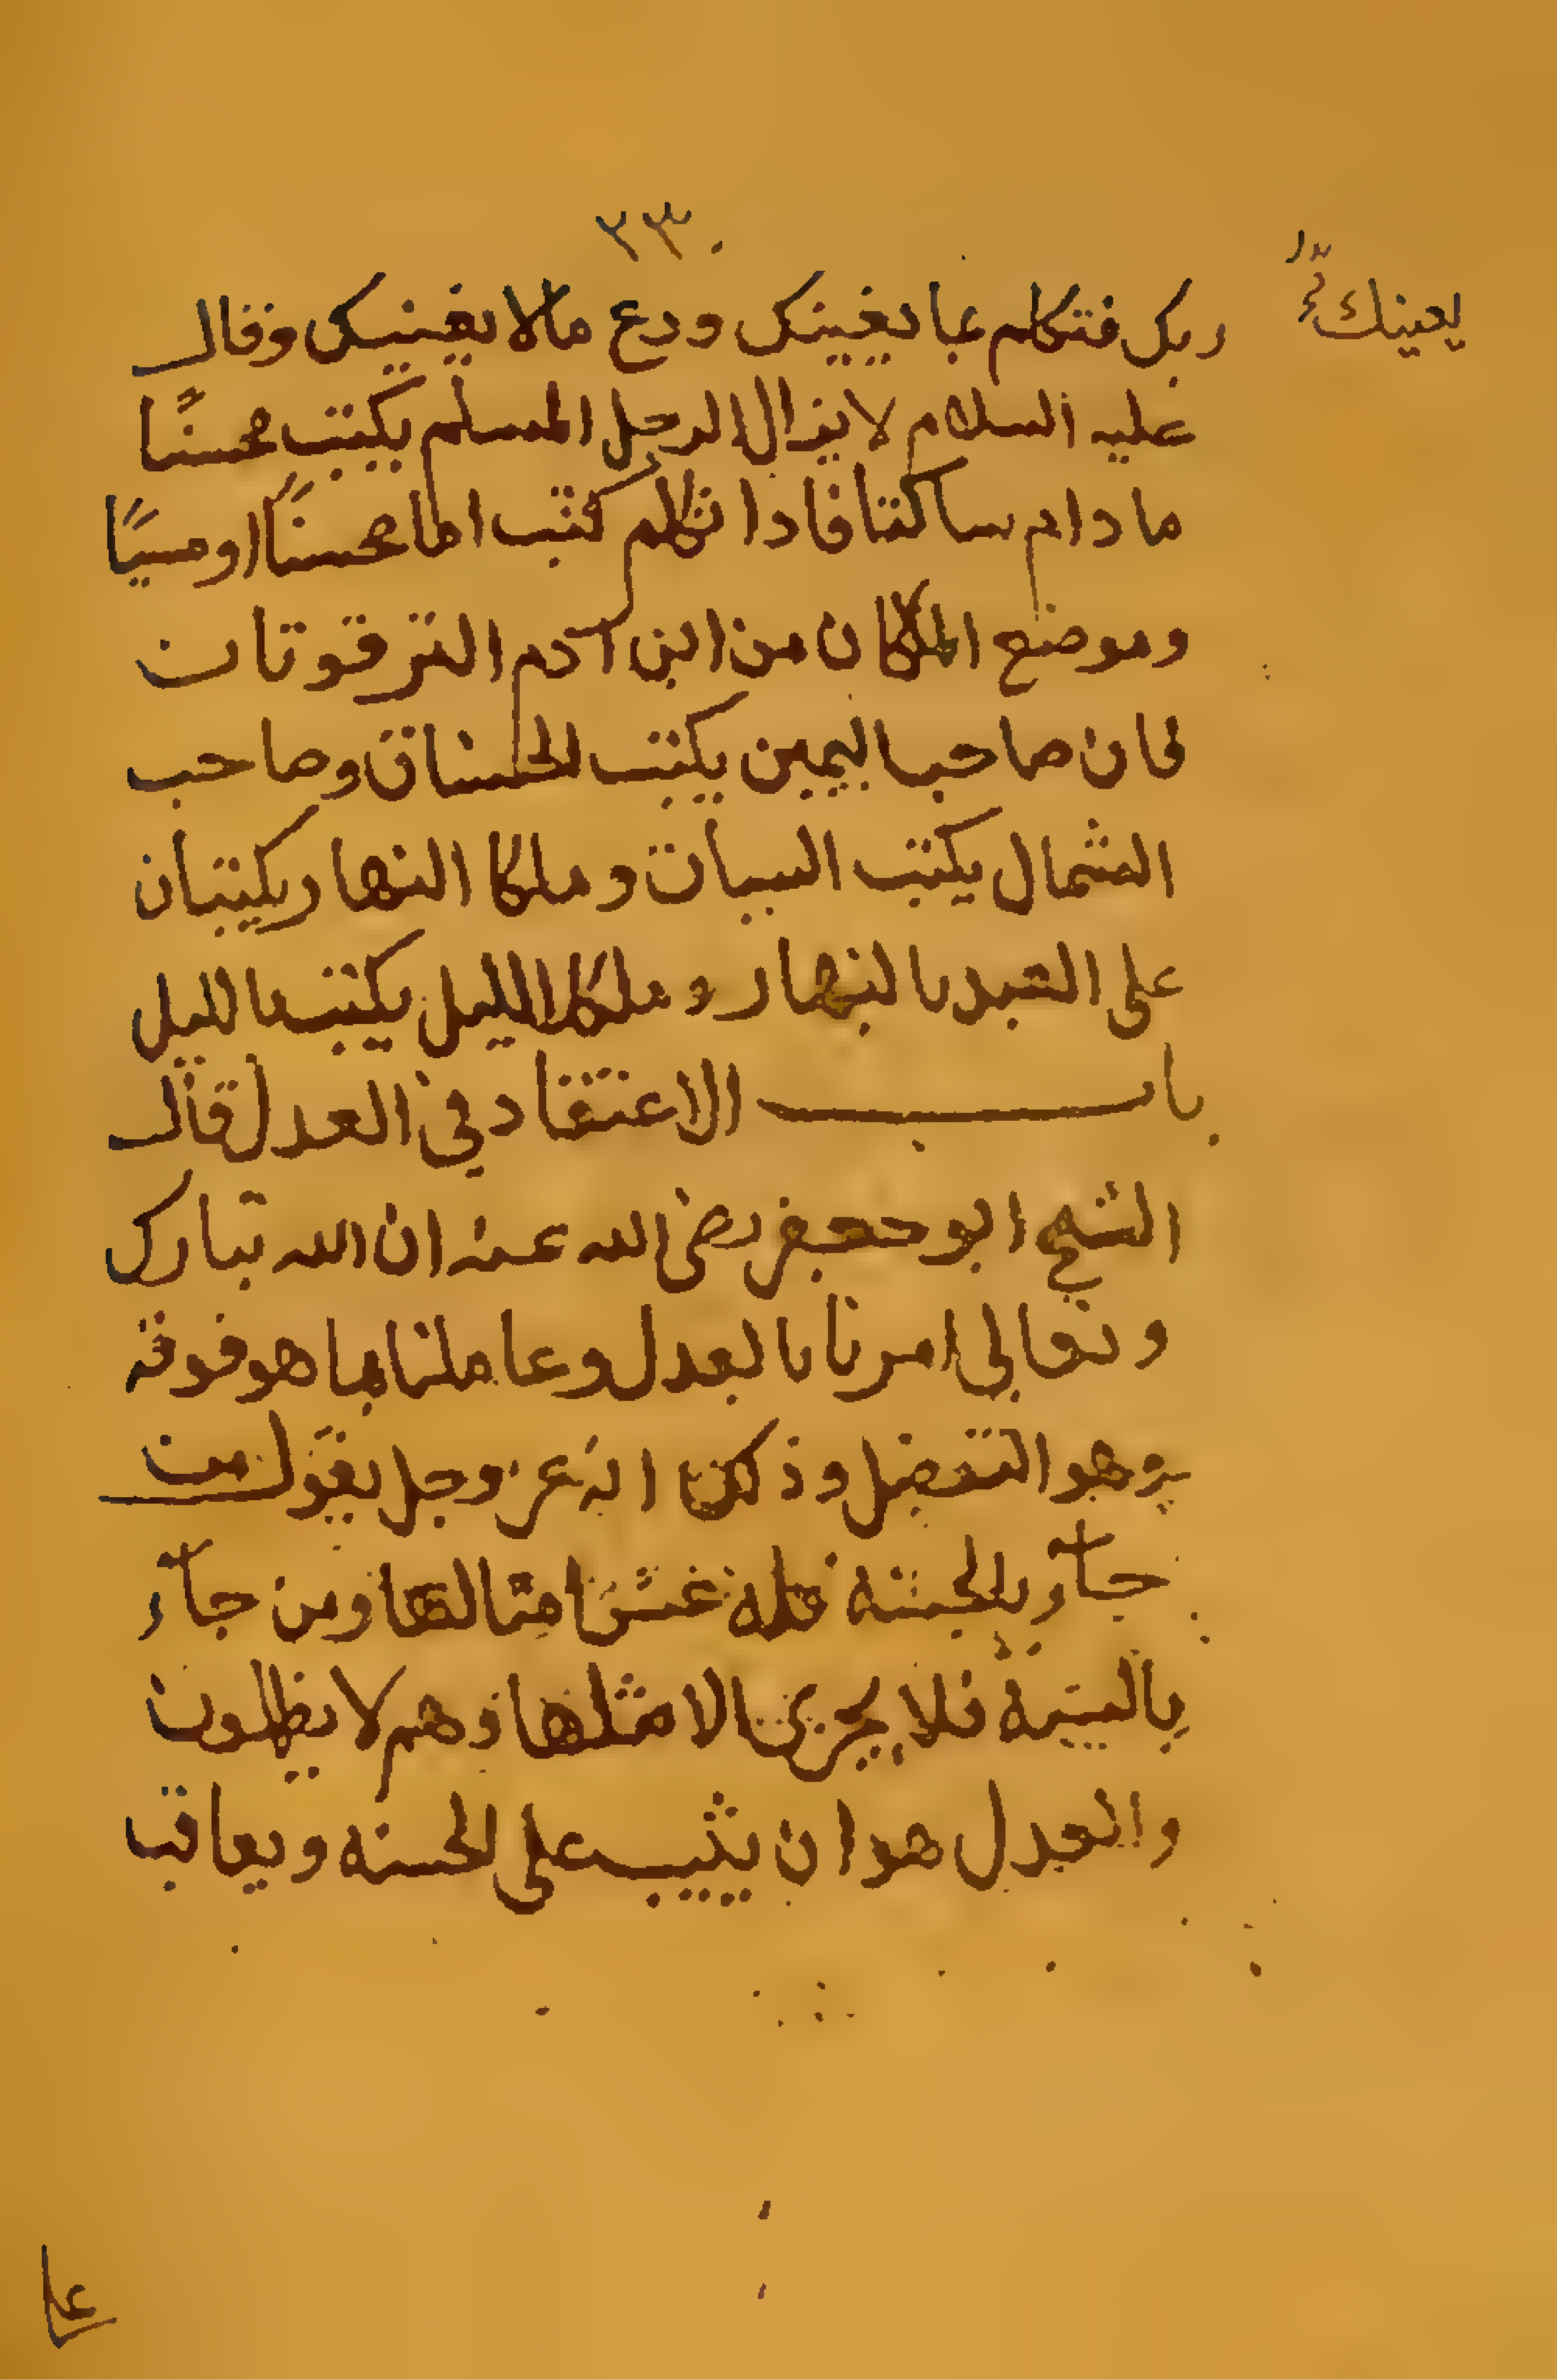 ٢٣٠
يعينك
ربك فتكلم بما يغنيك ودع مالا يغنيك وقال
عليه السلام لا يزال الرجل المسلم يكتب محسنًا
ما دام ساكتا فاذا تكلم كتب اما محسنًا او مسيًا
وموضع الملكان من ابن ادم الترقوتان
فان صاحب اليمين يكتب الحسنات وصاحب
الشمال يكتب السيات وملكا النهار يكتبان
على العبد بالنهار وملكا الليل يكتب بالليل
باب الاعتقاد في العدل قال
الشيخ ابو جعفر رضى الله عنه ان الله تبارك
وتعالى امرنا بالعدل وعاملنا بما هو فوقه
وهو التفضل وذلك انه عز وجل يقول من
جآء بالحسنة فله عشر امثالها ومن جآء
بالسيئة فلا يجزى الا مثلها وهم لا يظلمون
والعدل هو ان يثيب على الحسنه ويعاقب
على